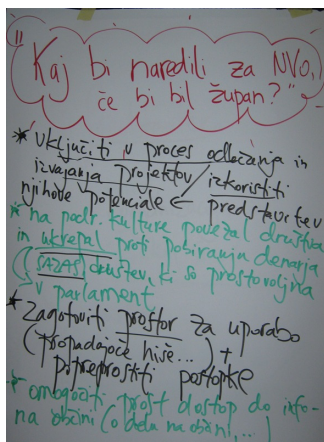 "Kaj bi naredili za NVO,
če bi bil župan?"
* vključiti v proces odločanja in
izvajanja projektov izkoristiti
njihove potenciale predstavitev
* na podr. kulture povezal društva
in ukrepal proti pobiranju denarja
(SAZAS) društev, ki so prostovoljna
v parlament
* Zagotoviti prostor za uporabo
(propadajoče hiše...) +
poenostaviti postopke
* omogočiti prost dostop do info-
na občini (o delu na občini,...)